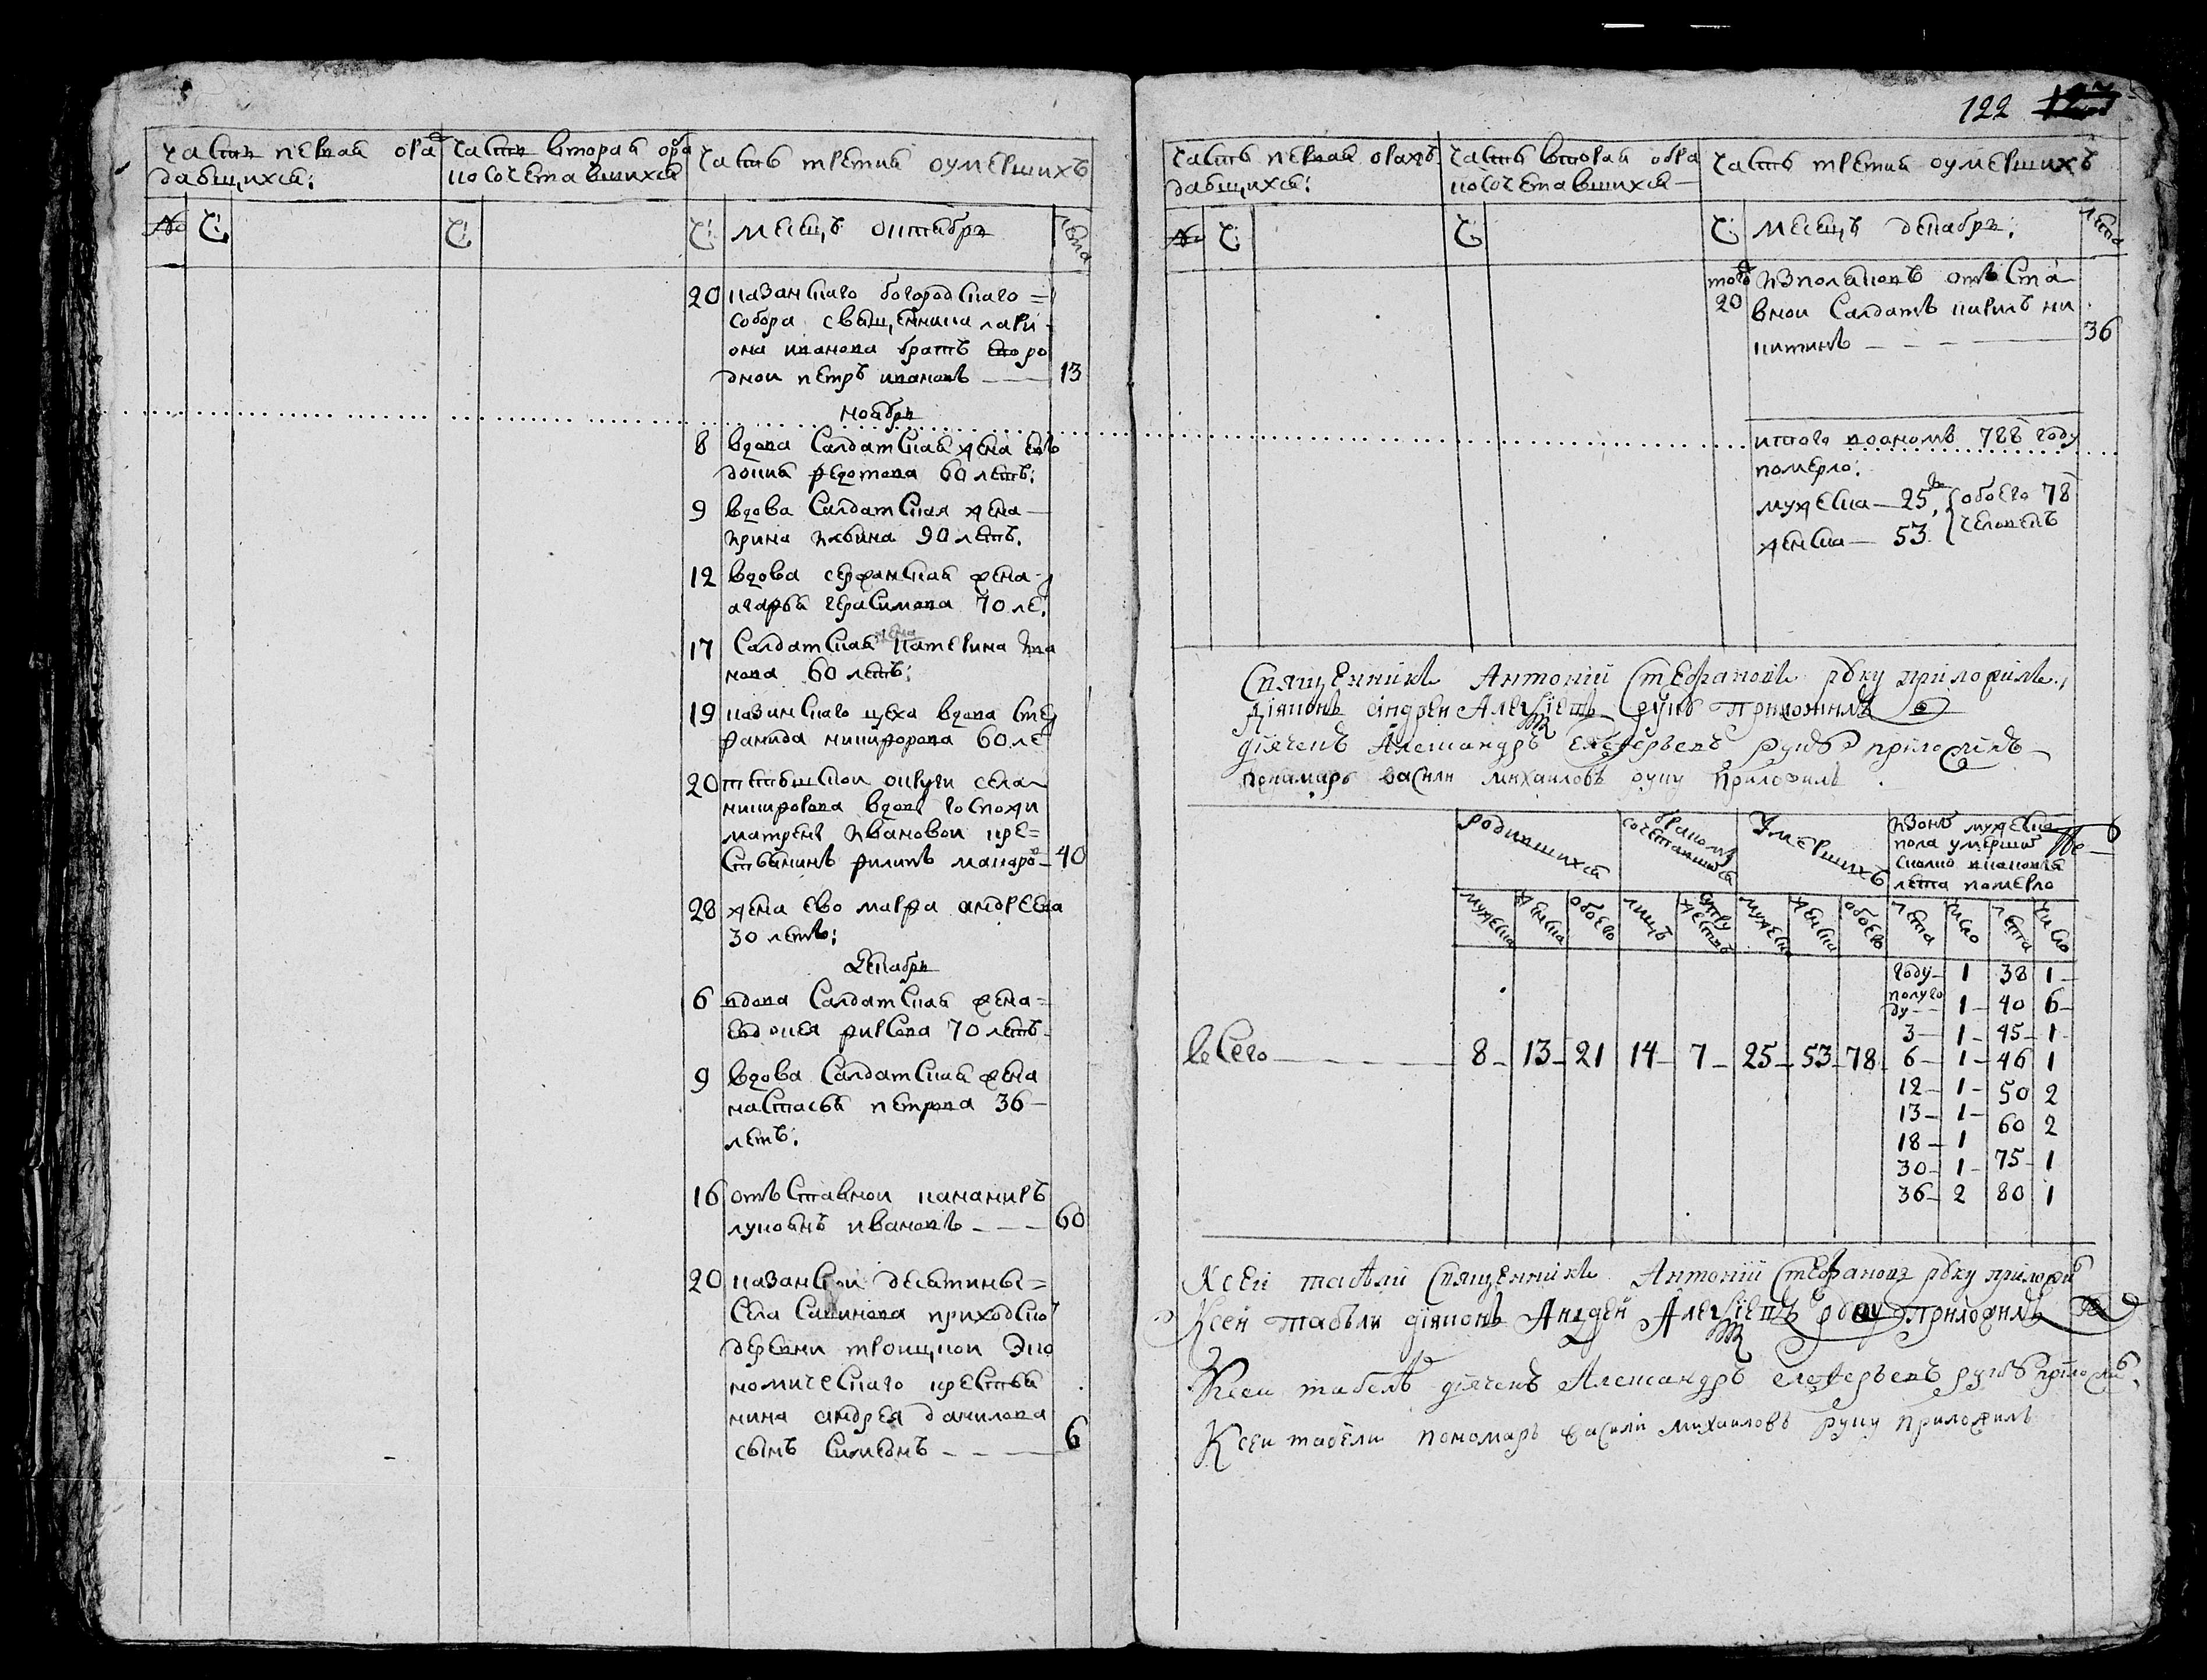 часть первая о ра
дабщихся:
часть вторая о бра
косочетавшихся
часть третия оумершихъ
№ Ч: Ч: Ч: месецъ октябрь лета
20 казанскаго богородскаго =
собора священника лари
она иванова братъ дво ро
дной петръ ивановъ — 13
ноябрь
8 вдова салдатская жена евъ
докия федотова 60 летъ:
9 вдова салдатская жена —
ирина ильина 90 летъ.
12 вдова сержанская жена
агафья герасимова 70 ле:
17 салдатская жена катерина ива
нова 60 летъ:
19 казанскаго цеха вдова сте
фанида никифорова 60 ле
20 тетюшской округи села
никифорова вдовы госпожи
матрены ивановой кре=
стьянинъ филипъ макаро — 40
28 жена ево марфа андреева
30 летъ:
декабрь
6 вдова салдатская жена =
евдокея фирсова 70 летъ
9 вдова салдатская жена
настасья петрова 36 —
летъ:
16 отъставной канониръ
лукоянъ ивановъ — — — 60
20 казанской десятины =
села савинова приходской
деревни троицкой эко
номическаго крестья
нина андрея данилова
сынъ симеонъ — — — 6
122
часть первая ораж
дабщихся:
часть вторая обра
косочетавшихся —
часть третия оумершихъ
№ Ч: Ч: Ч: месецъ декабрь: лета
того 20 изполаковъ отъста
вной салдатъ кирилъ ни
китинъ — — — — 36
итого воономъ 788 году
померло:
мужеска — 25 обоего 78
женска — 53 человекъ
Священникъ Антоній Стефановъ руку приложилъ
діяконъ Андрей Алексіевъ руку приложилъ
дїячекъ Александръ Елеферьевъ руку приложилъ
пономарь василий михаиловъ руку приложилъ
родившихся
бракомъ сочетавшихся
Умершихъ
изонъ мужеска
пола умершихъ
сколко икаковыя
лета померло
мужеска женска обоего лицъ супружествъ мужеска женска обоего лета число лета число
году — 1 38 1 —
полуго
ду — — 1 — 40 6 —
3 — 1 — 45 — 1
6 — 1 — 46 1
весего — — — — 8 — 13 — 21 14 — 7 — 25 — 53 78
12 — 1 — 50 2
13 — 1 — 60 2
18 — 1 75 — 1
30 — 1 — 80 1
36 — 2
Ксей табели Священникъ Антоній Стефановъ руку приложи
Ксей табели діяконъ Андрей Алексіевъ руку приложилъ
Ксеи табелѣ дїячекъ Александръ елеферьевъ руку приложи
Ксеи табели пономарь василий михаиловъ руку приложилъ